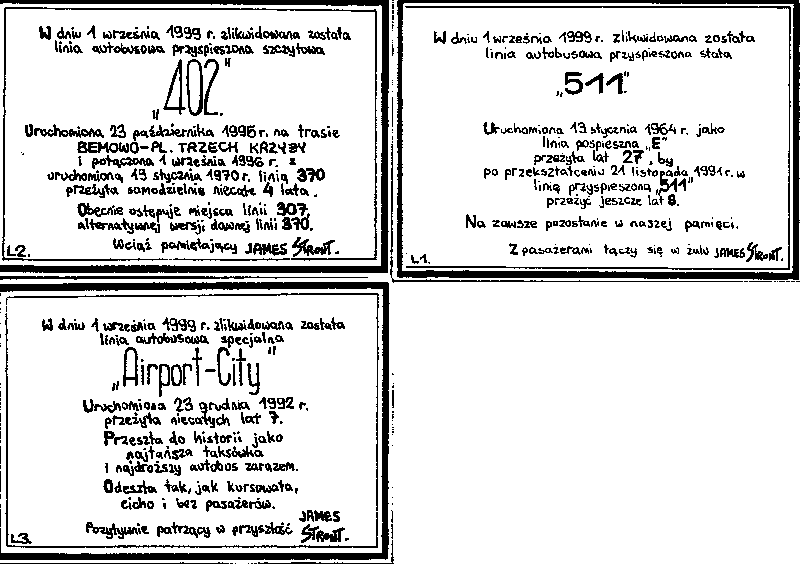 W dniu 1 września 1999 r. zlikwidowana została
linia autobusowa przyspieszona szczytowa
„402"
Uruchomiona 23 października 1996 r. na trasie
BEMOWO-PL. TRZECH KRZYŻY
i połączona 1 września 1996 r. z
uruchomioną 19 stycznia 1970 r. linią 370
przeżyła samodzielnie niecałe 4 lata.
Obecnie ustępuje miejsca linii 307,
alternatywnej wersji dawnej linii 370.
Wciąż pamiętający JAMES STRONT.
L2.
W dniu 1 września 1999 r. zlikwidowana została
linia autobusowa przyspieszona stała
„511"
Uruchomiona 13 stycznia 1964 r. jako
linia pospieszna „E"
przeżyła lat 27, by
po przekształceniu 21 listopada 1991 r. w
linię przyspieszoną „511"
przeżyć jeszcze lat 8.
Na zawsze pozostanie w naszej pamięci.
Z pasażerami łączy się w żalu JAMES STRONT.
L1.
W dniu 1 września 1999 r. zlikwidowana została
linia autobusowa specjalna
„Airport-City"
Uruchomiona 23 grudnia 1992 r.
przeżyła niecałych lat 7.
Przeszła do historii jako
najtańsza taksówka
i najdroższy autobus zarazem.
Odeszła tak, jak kursowała,
cicho i bez pasażerów.
Pozytywnie patrzący w przyszłość JAMES
STRONT.
L3.